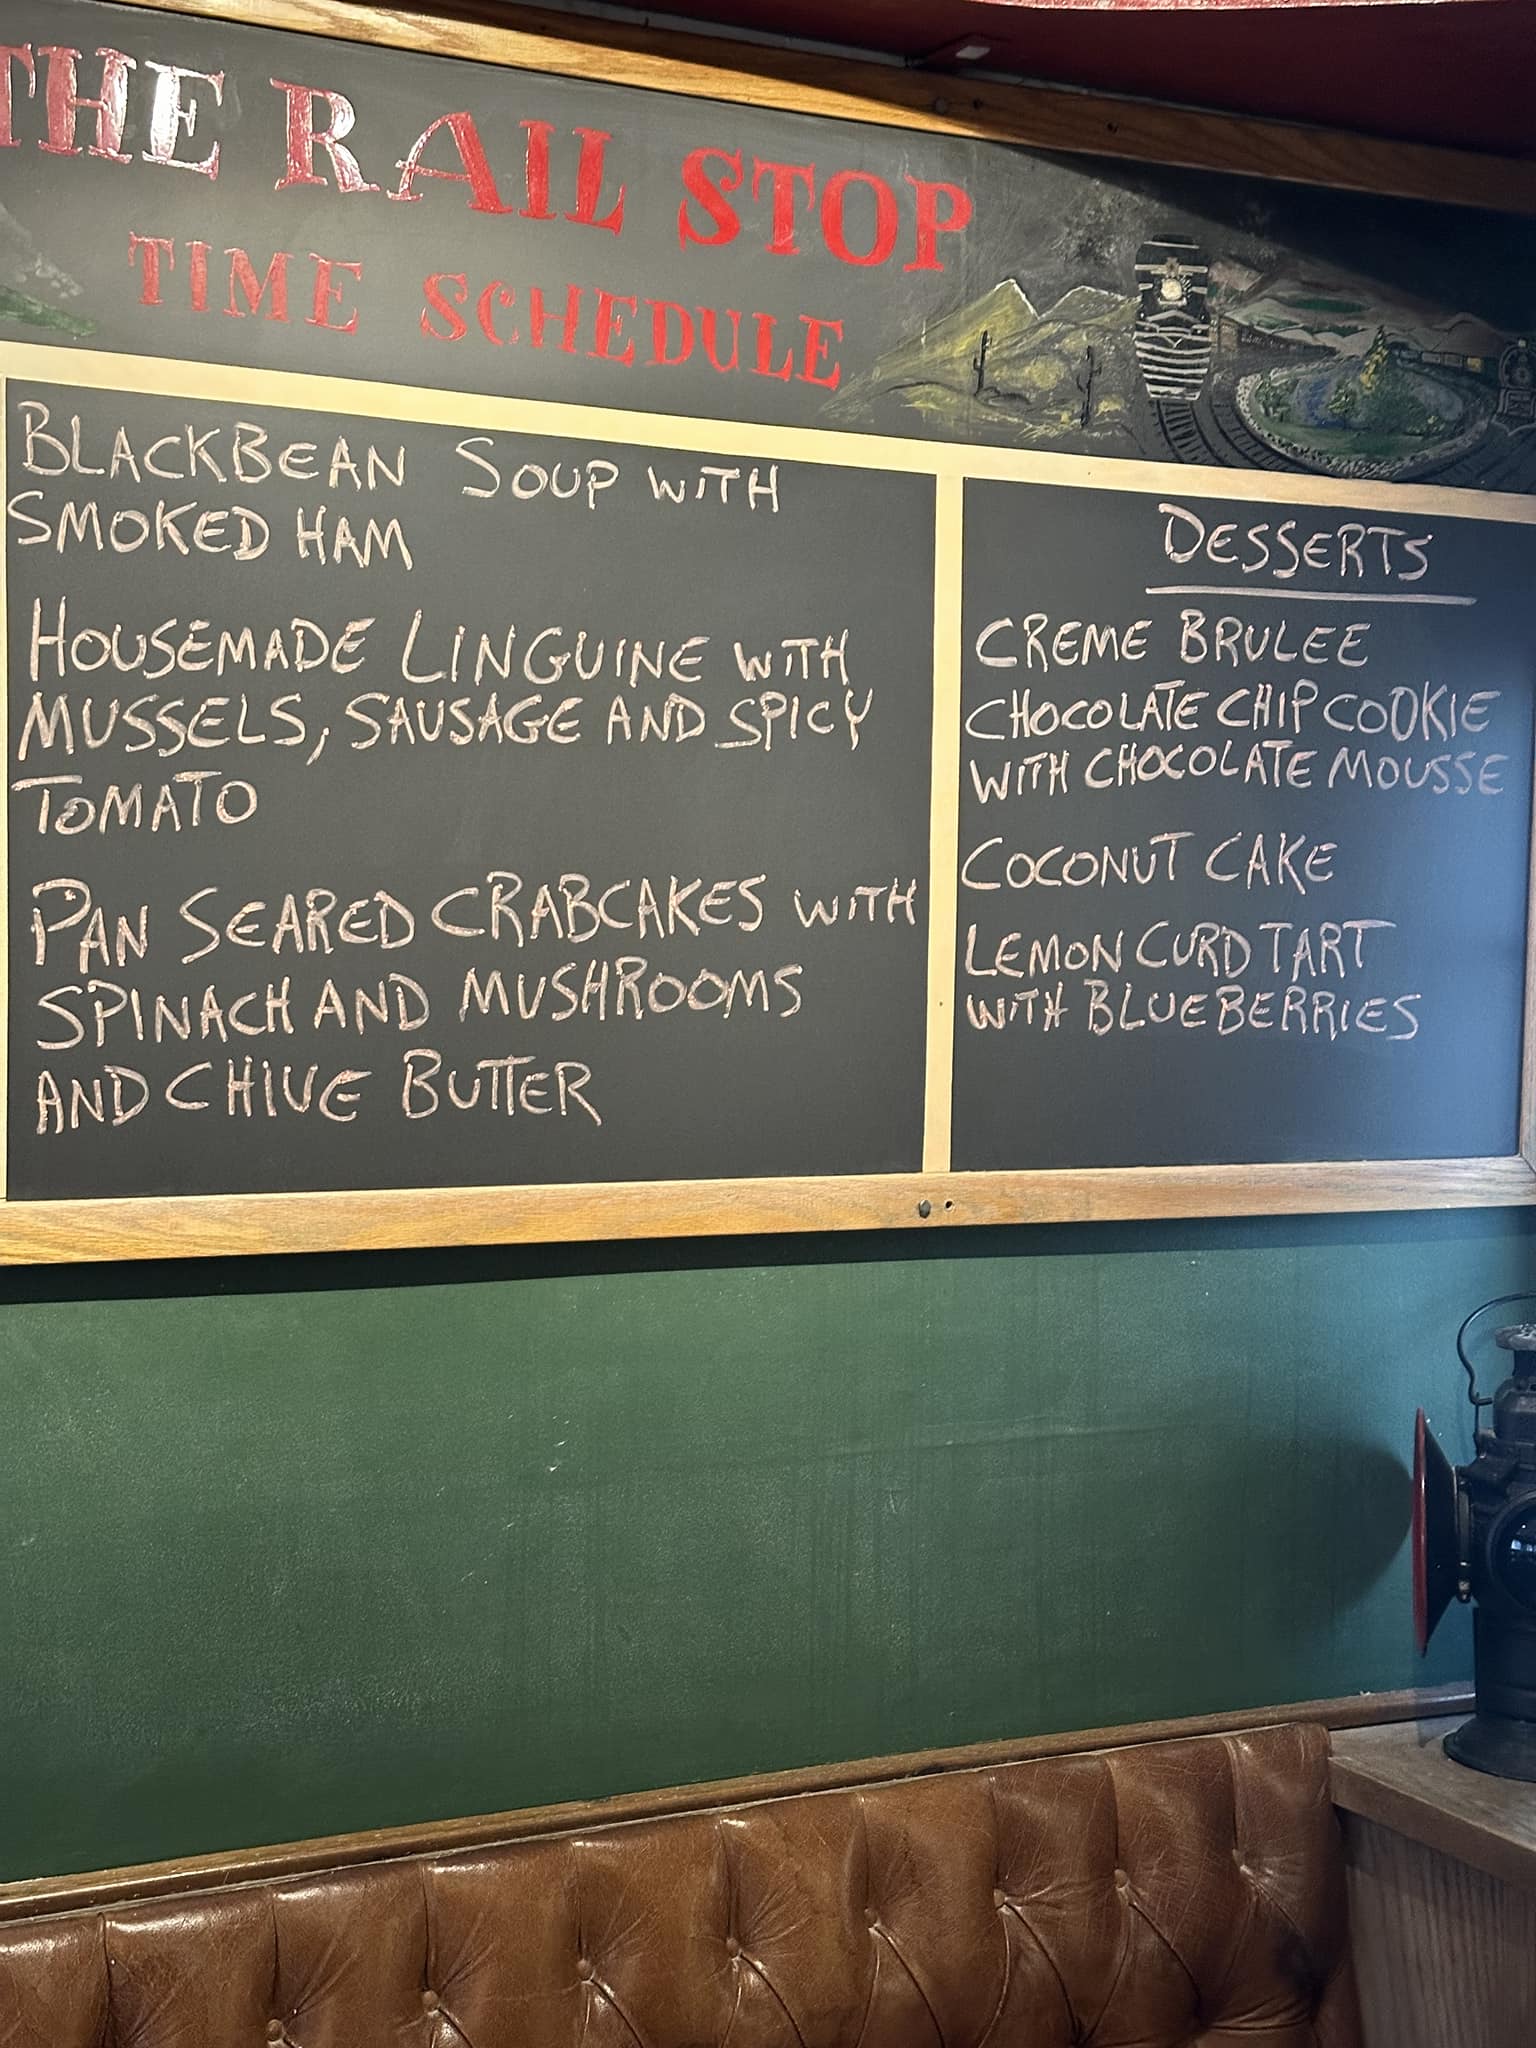 THE RAIL STOP
TIME SCHEDULE
BLACKBEAN SOUP WITH
SMOKED HAM
HOUSEMADE LINGUINE WITH
MUSSELS, SAUSAGE AND SPICY
TOMATO
PAN SEARED CRABCAKES WITH
SPINACH AND MUSHROOMS
AND CHIVE BUTTER
DESSERTS
CREME BRULEE
CHOCOLATE CHIP COOKIE
WITH CHOCOLATE MOUSSE
COCONUT CAKE
LEMON CURD TART
WITH BLUEBERRIES